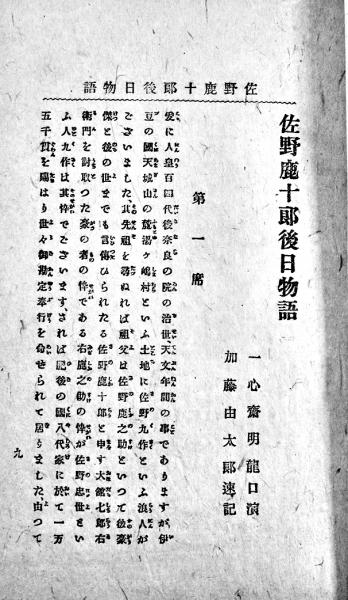 佐野鹿十郎後日物語
佐野鹿十郎後日物語
一心齋明龍口演
加藤由太郎速記
第一席
爰に人皇百四代後奈良の院の治世天文年間の事でありますが、伊
豆の國天城山の麓湯ヶ嶋村といふ土地に佐野九作といふ浪人が
ございました、其先祖を尋ぬれば祖父は佐野鹿之助といつて後豪
傑と後の世までも言傳ひられたる佐野鹿十郎と申す大舘七郎右
衛門を討取つた豪の者の悴である右鹿之助の悴が佐野忠世とい
ふ人九作は其悴でございます、されば肥後の國八代家に於て一万
五千貫を賜はり世々御勘定奉行を命せられて居りました、由つて
九